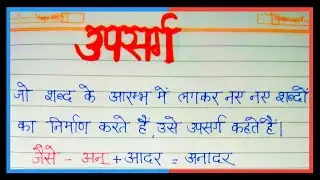 उपसर्ग
जो शब्द के आरम्भ में लगकर नए नए शब्दों
का निर्माण करते हैं, उसे उपसर्ग कहते हैं।
जैसे - अन् + आदर = अनादर